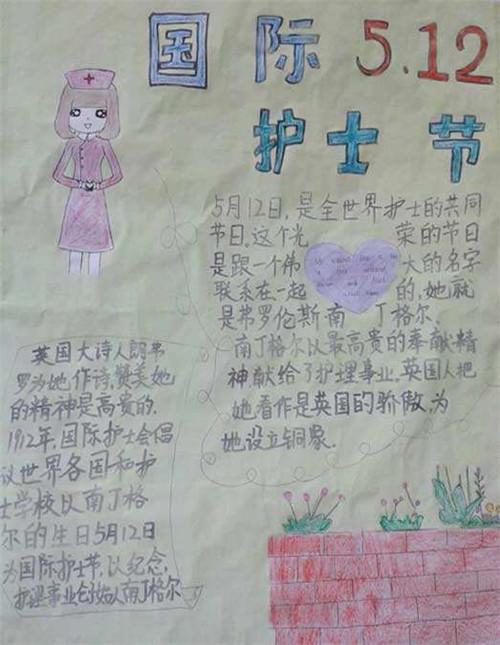 国际5.12
护士节
5月12日，是全世界护士的共同
节日，这个光荣的节日
是跟一个伟大的名字
联系在一起的，她就
是弗罗伦斯南丁格尔、
南丁格尔以最高贵的奉献精
神献给了护理事业，英国人把
她看作是英国的骄傲，为
她设立铜象.
英国大诗人朗弗
罗为她作诗，赞美她
的精神是高贵的.
1912年，国际护士会倡
议世界各国和护
士学校以南丁格
尔的生日5月12日
为国际护士节，以纪念，
护理事业创始人南丁格尔